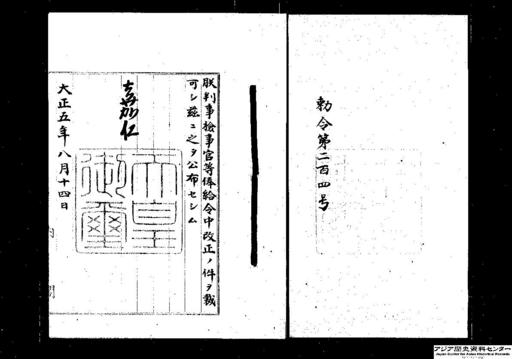 勅令第二百四号
朕判事検事官等俸給令中改正ノ件ヲ裁
可シ茲ニ之ヲ公布セシム
嘉仁
天皇御璽
大正五年八月十四日
内閣
アジア歴史資料センター
Japan Center for Asian Historical Records